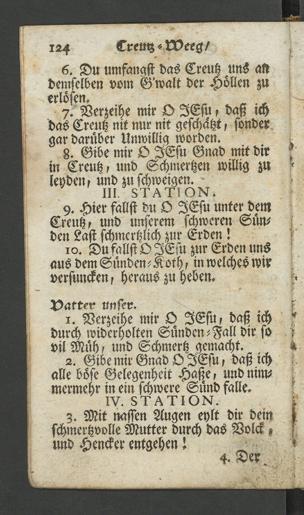 124 Creutz-Weeg/
6. Du umfangst das Creutz uns an
demselben vom G'walt der Höllen zu
erlösen.
7. Verzeihe mir O JEsu, daß ich
das Creutz nit nur nit geschätzt, sonder
gar darüber Unwillig worden.
8. Gibe mir O JEsu Gnad mit dir
in Creutz, und Schmertzen willig zu
leyden, und zu schweigen.
III. STATION.
9. Hier fallst du O JEsu unter dem
Creutz, und unserem schweren Sün-
den Last schmertzlich zur Erden!
10. Du fallst O JEsu zur Erden uns
aus dem Sünden-Koth, in welches wir
versuncken, heraus zu heben.
Vatter unser.
1. Verzeihe mir O JEsu, daß ich
durch widerholten Sünden-Fall dir so
vil Müh, und Schmertz gemacht.
2. Gibe mir Gnad O JEsu, daß ich
alle böse Gelegenheit Haße, und nim-
mermehr in ein schwere Sünd falle.
IV. STATION.
3. Mit nassen Augen eylt dir dein
schmertzvolle Mutter durch das Volck,
und Hencker entgehen!
4. Der